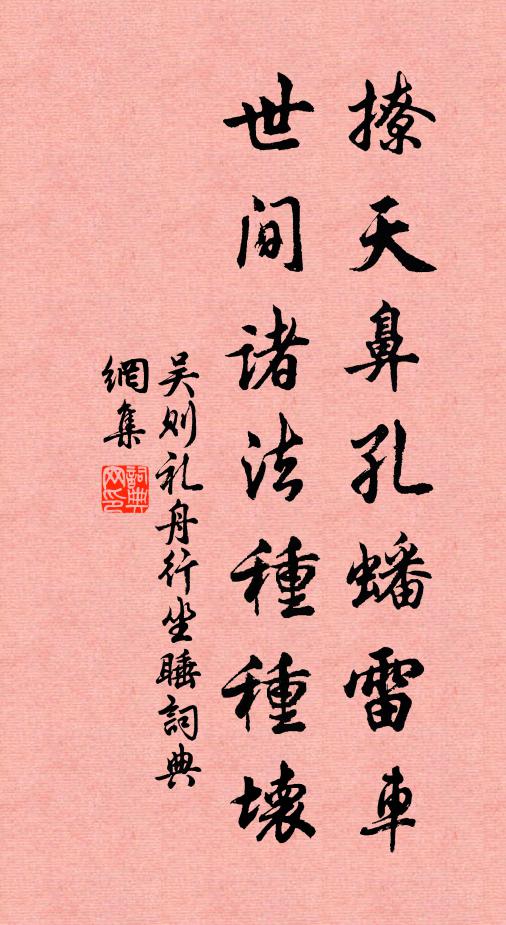 撩天鼻孔蟠雷車
世间諸法種種壞
吴则礼舟行坐睡詞典
網集
詞典网印